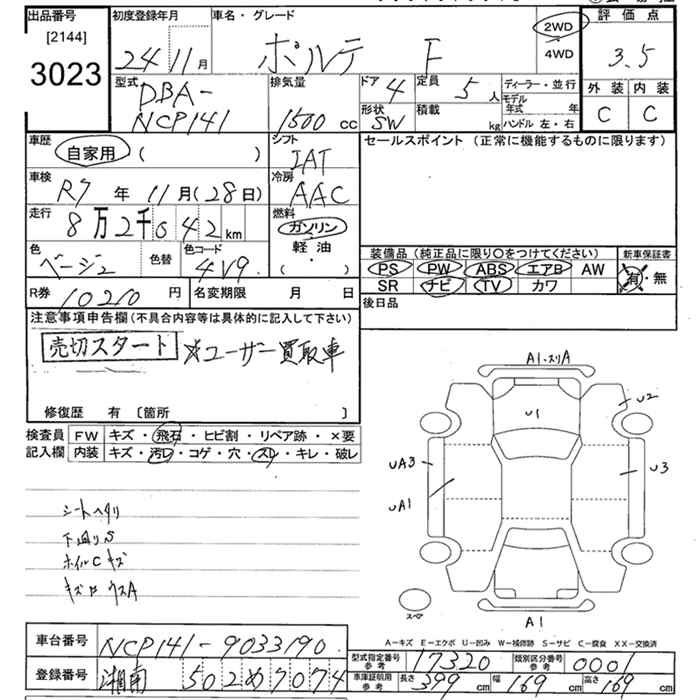 出品番号 初度登録年月 車名・グレード 評価点
[2144]
3023
24 11月 ポルテ F 2WD 4WD 3.5
型式 排気量 ドア 4 定員 5人 ディーラー・並行 外装 内装
DBA-
NCP141 1500cc 形状 SW 積載 kg モデル年式 年 ハンドル 左・右 C C
車歴 自家用 ( ) シフト セールスポイント (正常に機能するものに限ります)
IAT
車検 R7年 11月(28日) 冷房 AAC
走行 8万2千042km 燃料 ガソリン・軽油・( )
色 ベージュ 色替 色コード 4V9
装備品 (純正品に限り○をつけてください) 新車保証書
PS PW ABS エアB AW 有・無
SR ナビ TV カワ
R券 10210円 名変期限 月 日 後日品
注意事項申告欄(不具合内容等は具体的に記入して下さい)
売切スタート ※ユーザー買取車
修復歴 有 〔箇所 〕
検査員 FW キズ・飛石・ヒビ割・リペア跡・×要
記入欄 内装 キズ・汚レ・コゲ・穴・スレ・キレ・破レ
シートヘタリ
下廻りS
ホイルCキズ
A1・スリA
U1
U2
UA3
U3
UA1
スペア
A1
A-キズ E-エクボ U-凹み W-補修跡 S-サビ C-腐食 XX-交換済
車台番号 NCP141-9033190 型式指定番号 参考 17320 類別区分番号 参考 0001
登録番号 湘南 502 め 7074 車庫証明用 参考 長さ 399cm 幅 169cm 高さ 169cm